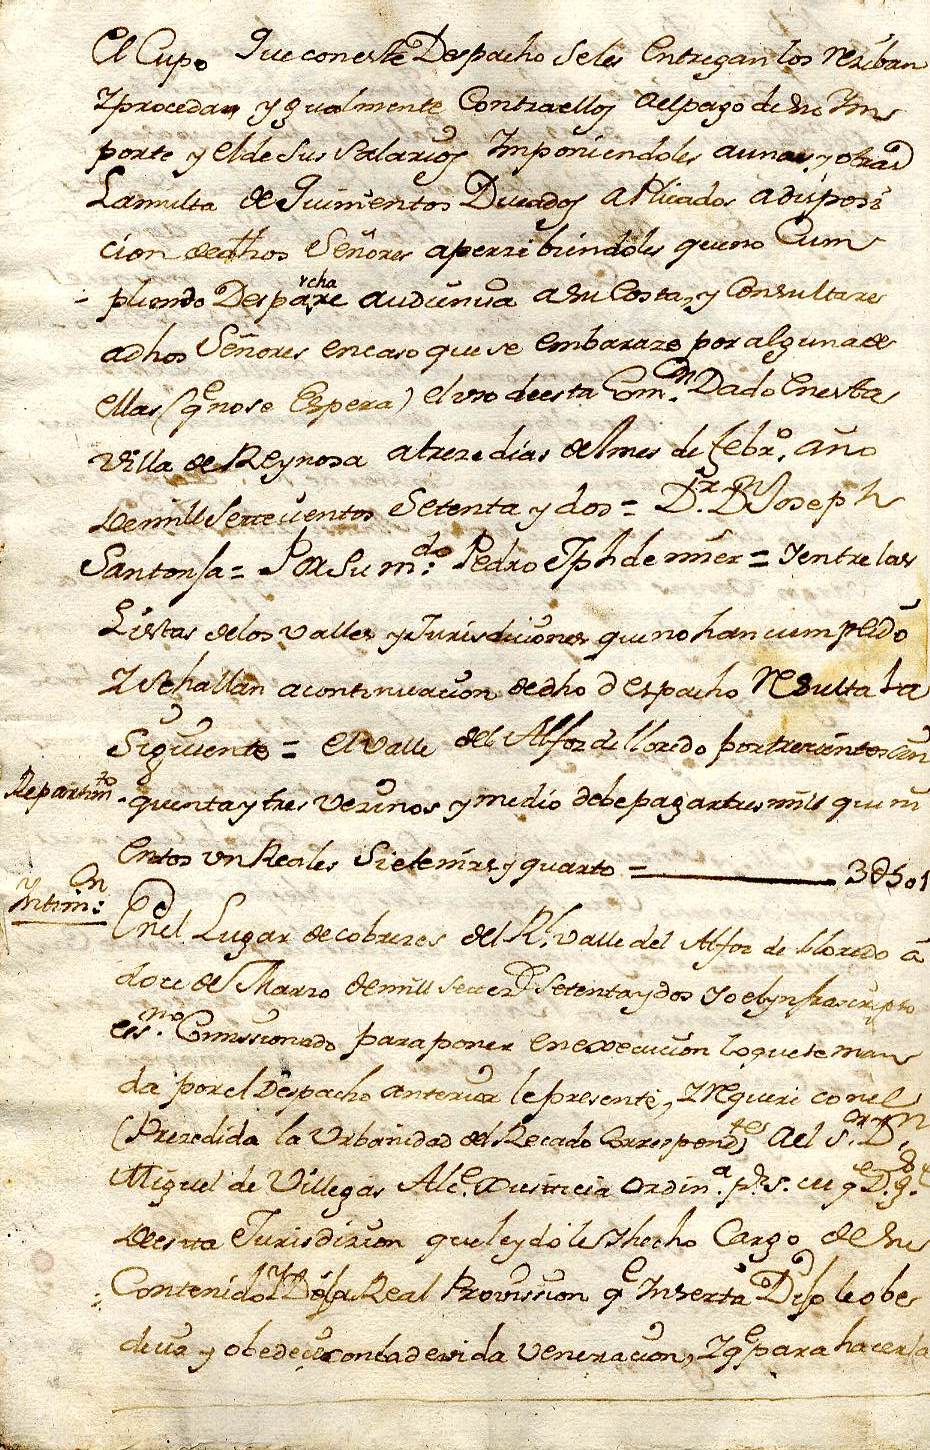 El Cupo que con este Despacho se les Entregan los reziban
y procedan ygualmente Contra ellos al pago de su Im
porte y el de sus salarios Imponiendoles a unos, y otros
La multa de quinientos Ducados aplicados a disposi
cion de dhos Señores aperzibiendoles que no Cum
pliendo Despachare audiencia a su Costa, y Consultare
a dhos Señores en caso que se embaraze por alguna de
ellas (qe no se Espera) el uso de esta Comon. Dado en esta
Villa de Reynosa a treze dias del mes de febro. año
de mill Settecientos Setenta y dos = Dr. Dn Joseph
Santonja = Por su mdo: Pedro Jph de mier = Y entre las
Listas de los valles y Jurisdiciones que no han cumplido
Y se hallan a continuacion de dho despacho resulta La
Siguiente = el Valle del Alfoz de lloredo por trecientos cin
Repartimto. quenta y tres vecinos y medio debe pagar tres mill quini
entos un Reales siete mrs y quarto = 3@501
Yntimon: En el Lugar de cobreces del Rl. valle del Alfoz de lloredo a
doce de Marzo de mill setezs Setenta y dos Yo el ynfrascripto
essno. Comissionado para poner en execucion lo que se man
da por el Despacho anterior le presente, Y requeri con el
(Prezedida la Urbanidad del Recado Correspondte) a el Sor Dn.
Miguel de Villegas Alce. Justicia ordina. pr S. M. qe D. g.
de esta Jurisdicion que leydole Y hecho Cargo de su
Contenido Y de la Real Provission qe Inserta Dijo le obe
decia y obedecio con la devida Veneracion, Y qe para hacerla